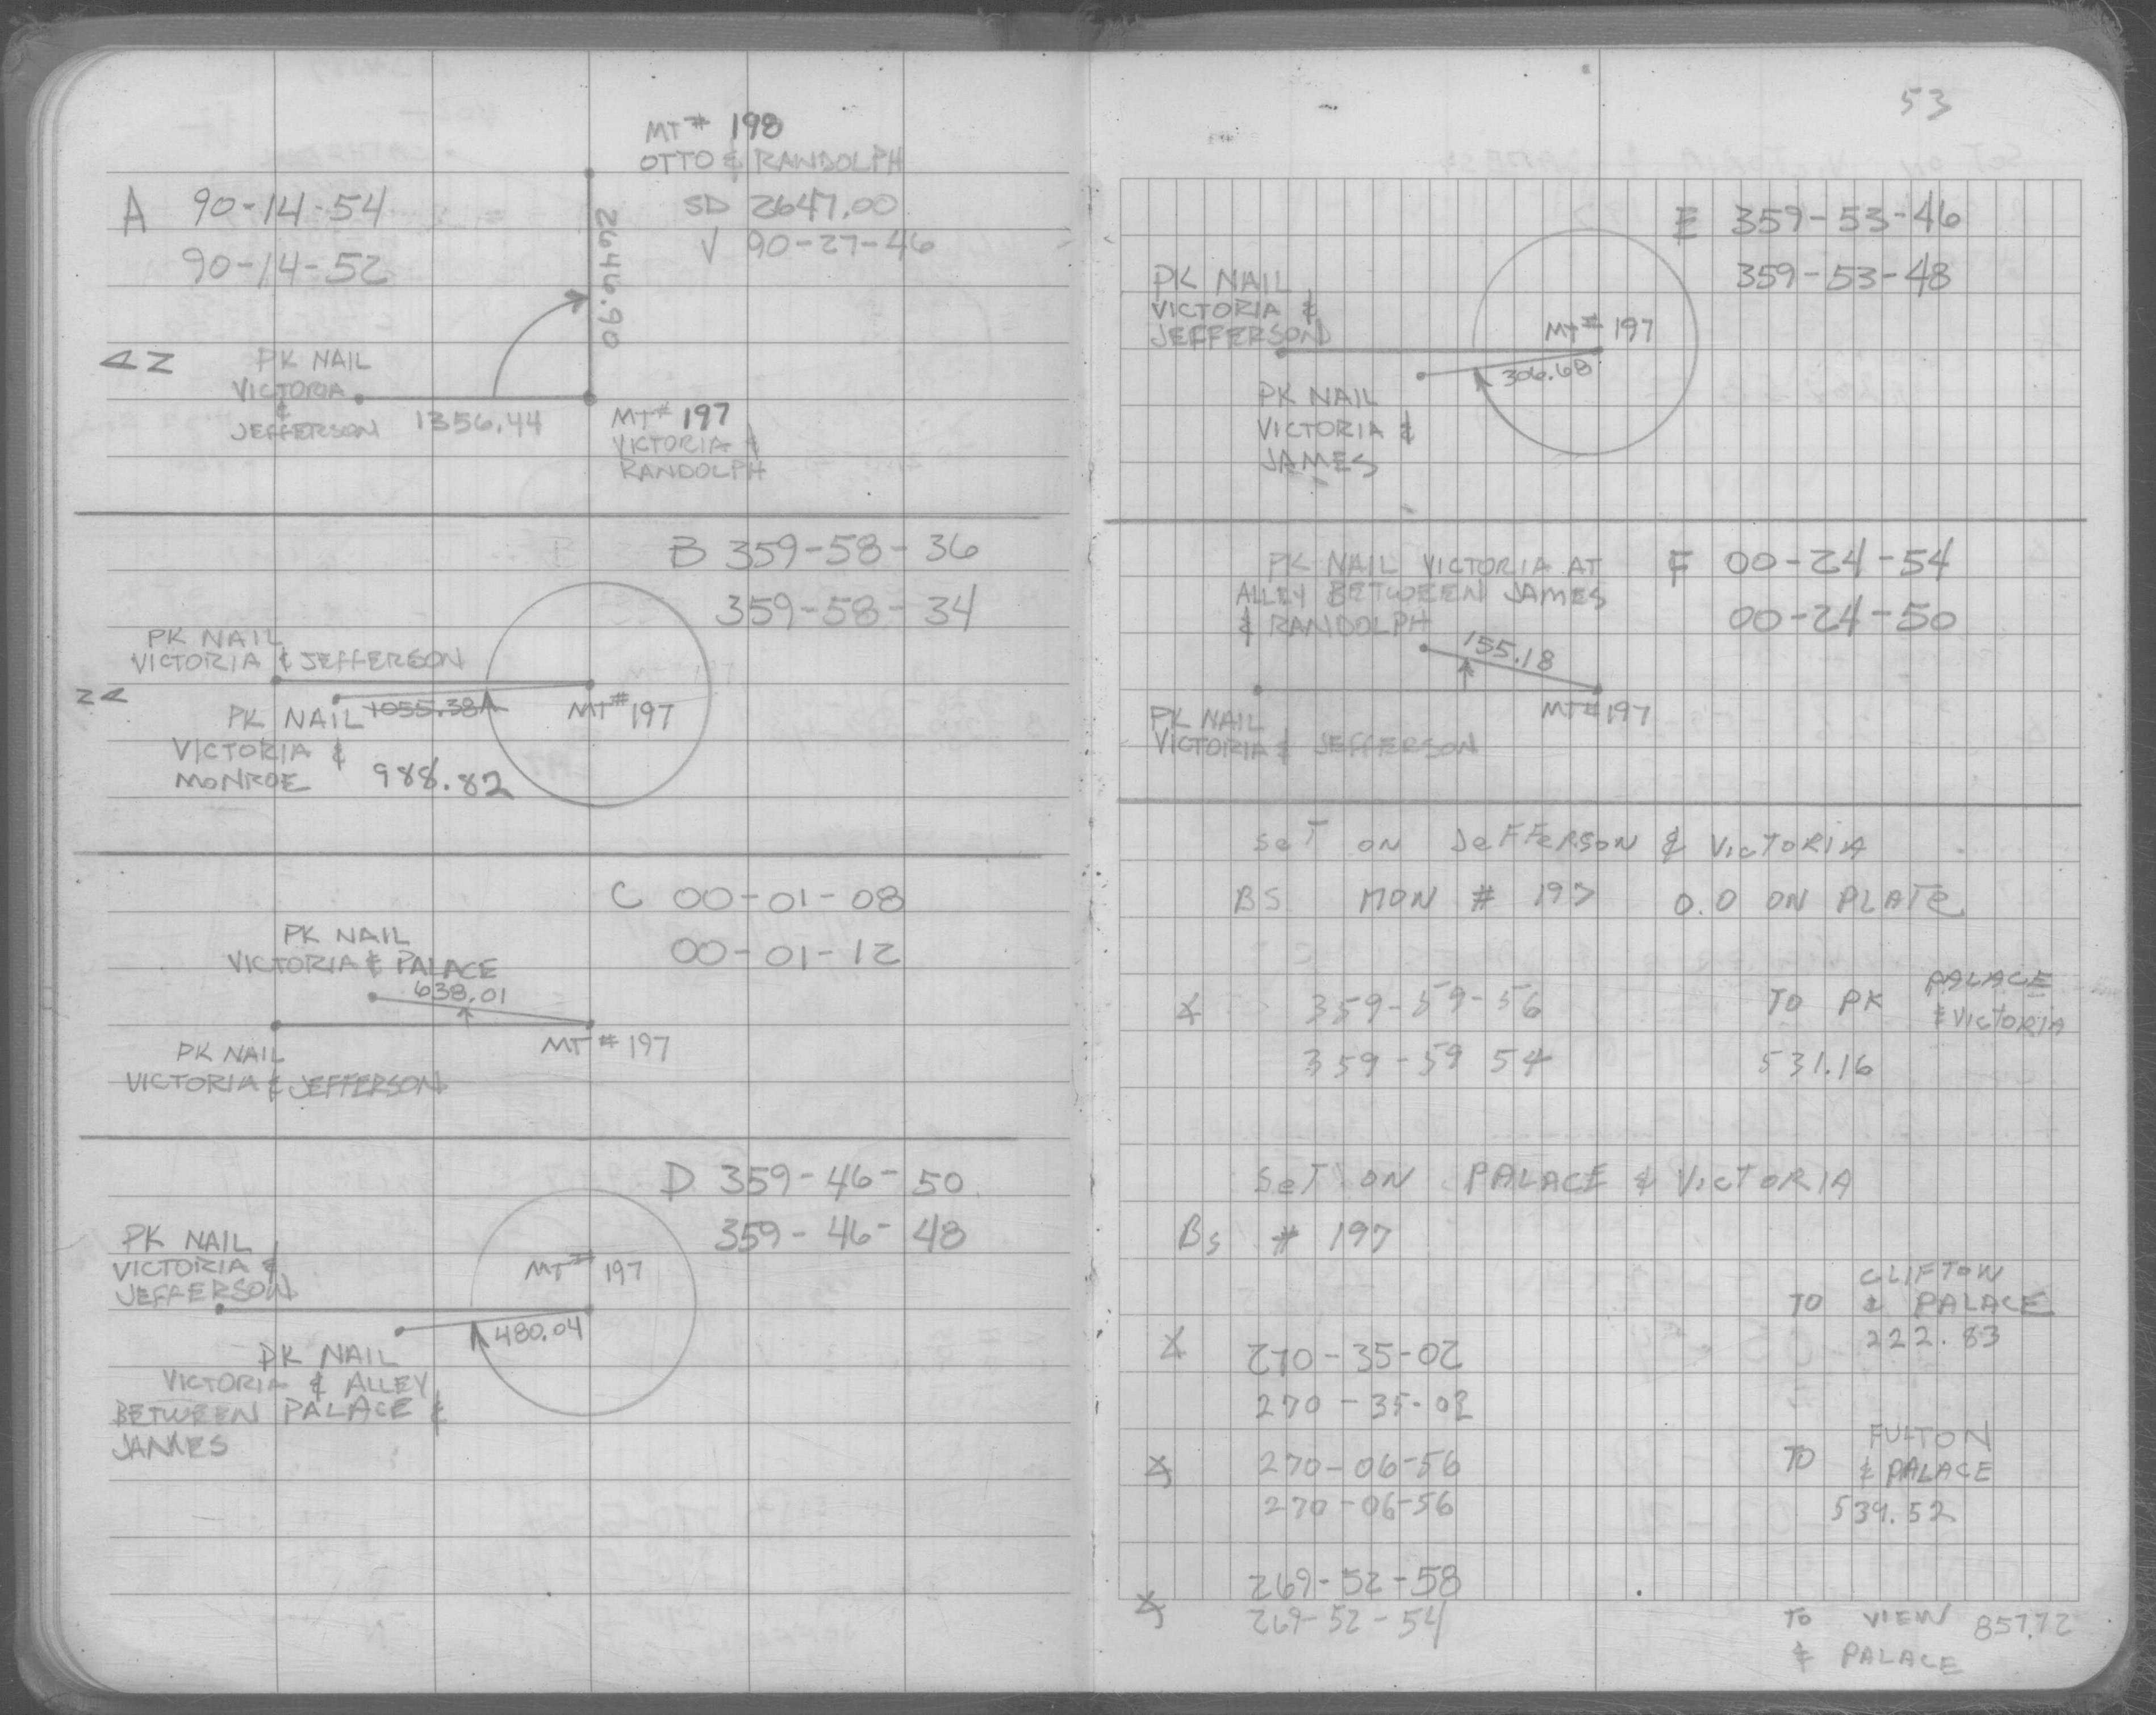 MT# 198
OTTO & RANDOLPH
A 90-14-54
SD 2647.00
90-14-52
V 90-27-46
2646.90
PK NAIL
VICTORIA
&
JEFFERSON
1356.44
MT# 197
VICTORIA &
RANDOLPH
B 359-58-36
359-58-34
PK NAIL
VICTORIA & JEFFERSON
PK NAIL 1055.38
MT# 197
VICTORIA &
MONROE
988.82
C 00-01-08
00-01-12
PK NAIL
VICTORIA & PALACE
638.01
MT# 197
PK NAIL
VICTORIA & JEFFERSON
D 359-46-50
359-46-48
PK NAIL
VICTORIA &
JEFFERSON
MT# 197
480.04
PK NAIL
VICTORIA & ALLEY
BETWEEN PALACE &
JAMES
53
E 359-53-46
359-53-48
PK NAIL
VICTORIA &
JEFFERSON
MT# 197
306.68
PK NAIL
VICTORIA &
JAMES
F 00-24-54
00-24-50
PK NAIL VICTORIA AT
ALLEY BETWEEN JAMES
& RANDOLPH
155.18
MT# 197
PK NAIL
VICTORIA & JEFFERSON
SeT ON JeFFeRSON & VicTORIA
BS MON # 197 0.0 ON PLATe
359-59-56 TO PK PALACE
& VicTORIA
359-59 54 531.16
SeT ON PALACE & VicTORIA
BS # 197
TO CLIFTON
& PALACE
270-35-02 222.83
270-35-02
270-06-56 TO FULTON
& PALACE
270-06-56 539.52
269-52-58
269-52-54 TO VIEW 857.72
& PALACE